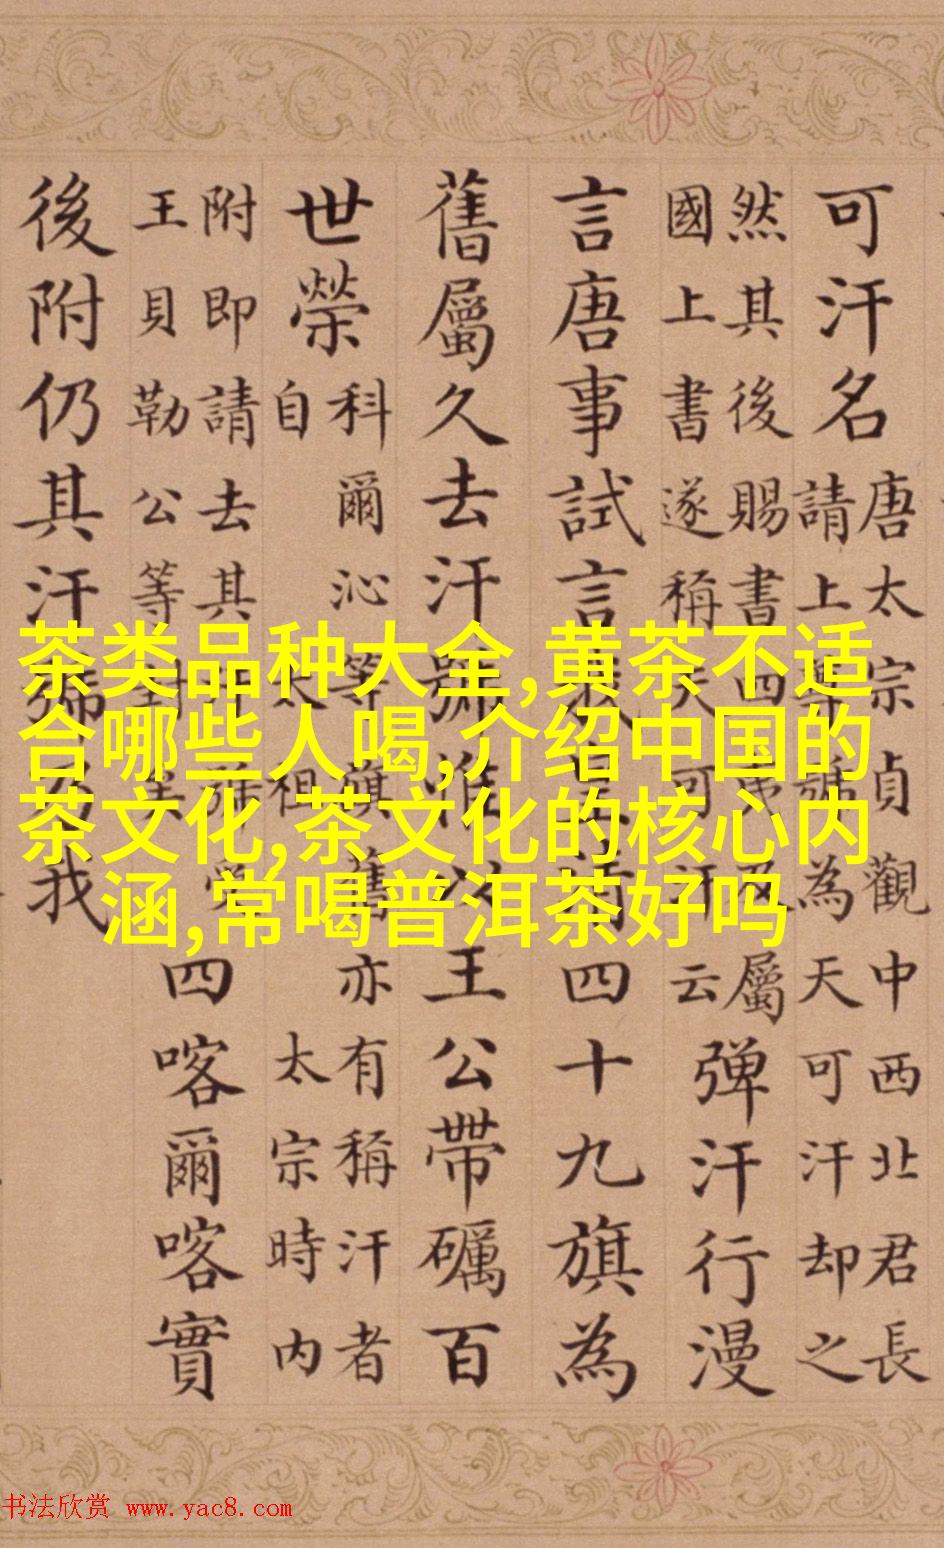 可汗名
唐太宗貞觀中西北君長
請上尊號為天可汗却之
然其後賜書四夷及屬
國上書遂稱天可汗云
弹汗行漫
言唐事試言我皇清四十九旗為
舊屬久去汗號惟以王公帶礪百
世榮
科爾沁等旗舊亦有稱汗者
自太祖太宗時内
附即請去其汗號受
王貝勒公等封
四喀爾喀實
後附仍其汗號乃我
茶类品种大全,黄茶不适
合哪些人喝,介绍中国的
茶文化,茶文化的核心内
涵,常喝普洱茶好吗
书法欣赏 www.yac8.com